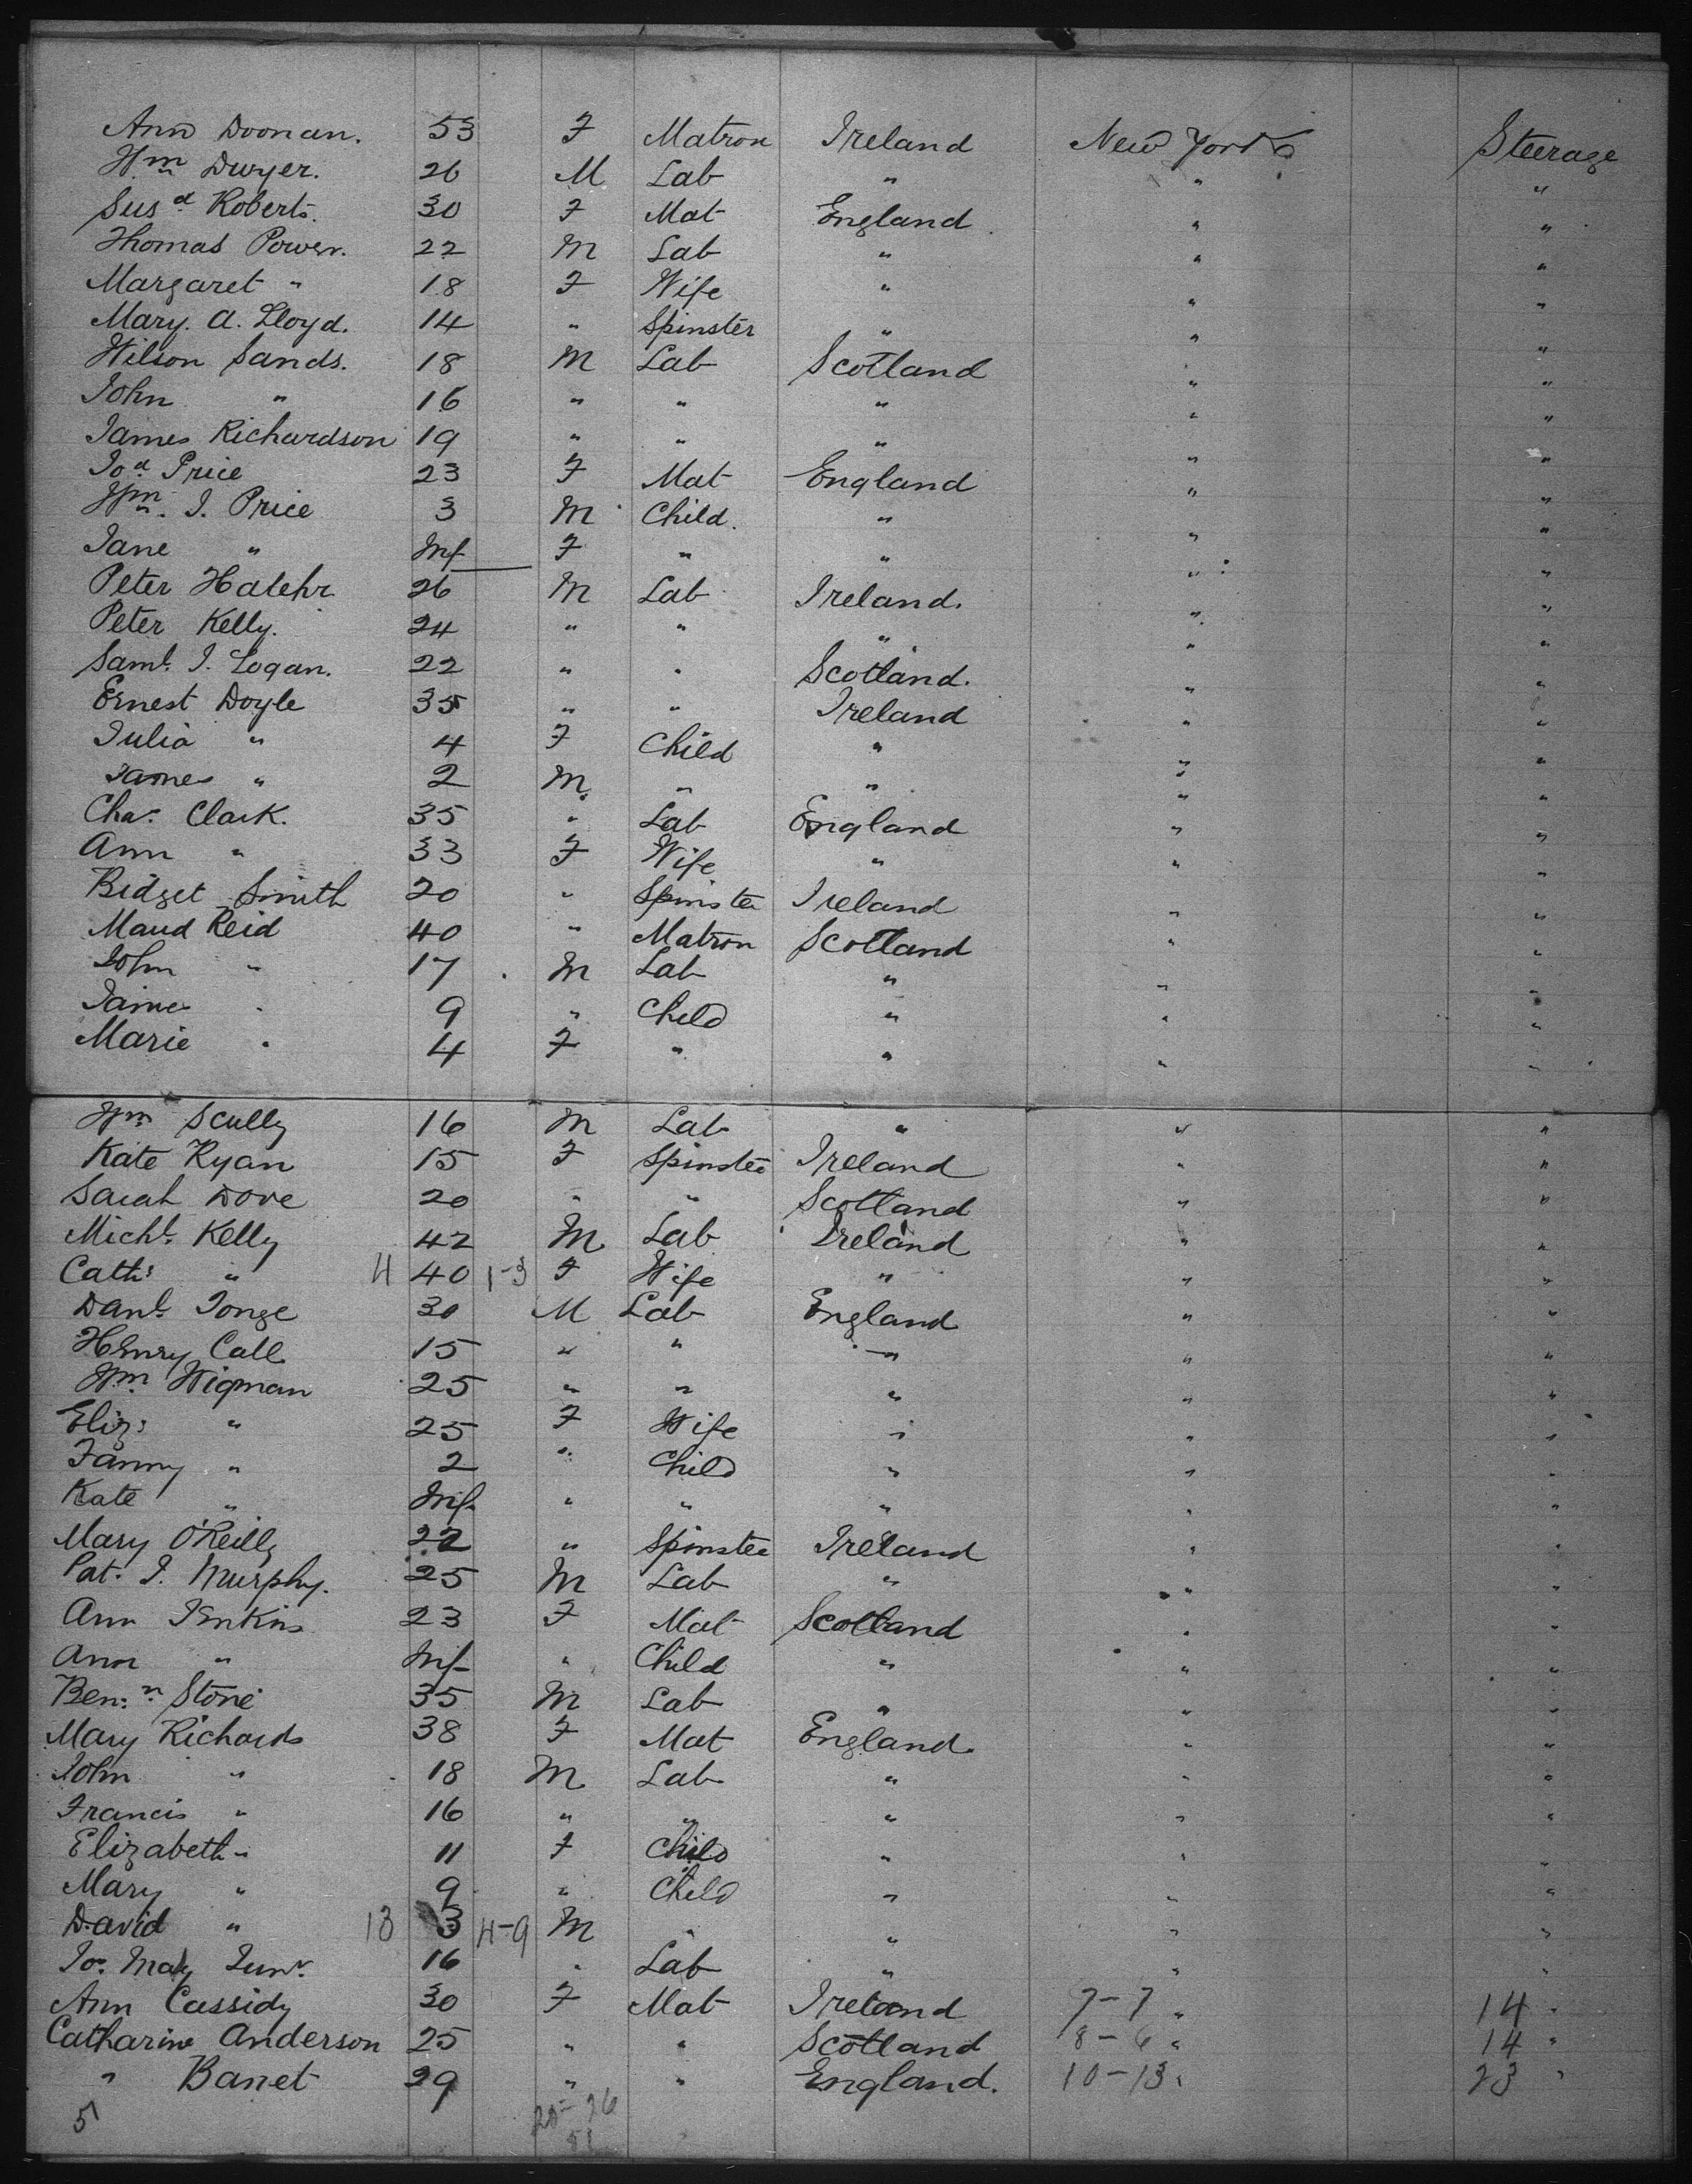 Ann Doonan. 53 F Matron Ireland New York Steerage
Wm Dwyer. 26 M Lab " " "
Susd Roberts. 30 F Mat England " "
Thomas Power. 22 M Lab " " "
Margaret " 18 F Wife " " "
Mary. A. Lloyd. 14 " Spinster " " "
Wilson Sands. 18 M Lab Scotland " "
John " 16 " " " " "
James Richardson 19 " " " " "
Jod Price 23 F Mat England " "
Wm. J. Price 3 M Child. " " "
Jane " Inf F " " " "
Peter Halehr 26 M Lab Ireland. " "
Peter Kelly. 24 " " " " "
Saml. J. Logan. 22 " " Scotland. " "
Ernest Doyle 35 " " Ireland " "
Julia " 4 F Child " " "
James " 2 M. " " " "
Chas. Clark. 35 " Lab England " "
Ann " 33 F Wife " " "
Bidget Smith 20 " Spinster Ireland " "
Maud Reid 40 " Matron Scotland " "
John " 17 M Lab " " "
James " 9 " Child " " "
Marie " 4 F " " " "
Wm Scully 16 M Lab " " "
Kate Ryan 15 F Spinster Ireland " "
Sarah Dove 20 " " Scotland " "
Michl. Kelly 42 M Lab Ireland " "
Cath: " 4 40 1-3 F Wife " " "
Danl. Tonge 30 M Lab England " "
Henry Call 15 " " " " "
Wm Wigman 25 " " " " "
Eliz: " 25 F Wife " " "
Fanny " 2 " Child " " "
Kate " Inf " " " " "
Mary O'Reilly 22 " Spinster Ireland " "
Pat. J. Murphy. 25 M Lab " " "
Ann Jenkins 23 F Mat Scotland " "
Ann " Inf " Child " " "
Ben:n Stone 35 M Lab " " "
Mary Richards 38 F Mat England " "
John " 18 M Lab " " "
Francis " 16 " " " " "
Elizabeth " 11 F Child " " "
Mary " 9 " Child " " "
David " 13 3 4-9 M " " " "
Jos. May Junr. 16 " Lab " " "
Ann Cassidy 30 F Mat Ireland 7-7 " 14 "
Catharine Anderson 25 " " Scotland 8-6 " 14 "
" Banet 29 " " England. 10-13 " 23 "
5 26
51